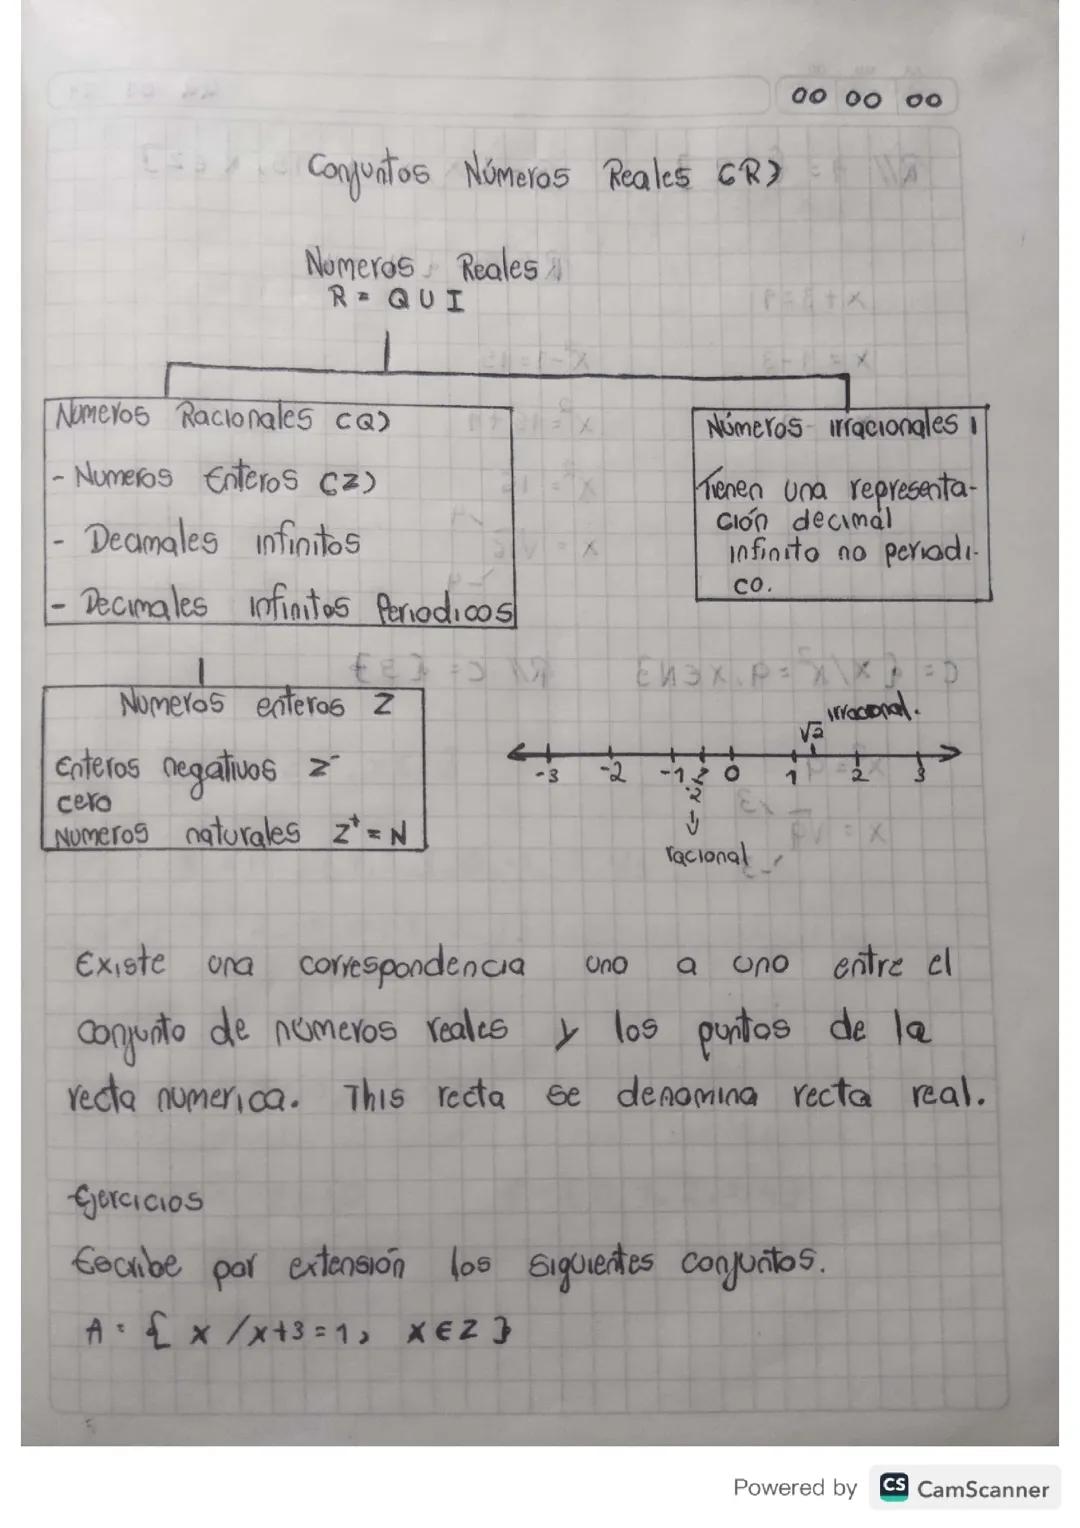 00 00 00
Conjuntos Números Reales (R)
Numeros Reales
R = Q U I
Numeros Racionales (Q)
- Numeros Enteros (Z)
- Decimales infinitos
- Decimales infinitos Periodicos
Números irracionales I
Tienen una representa-
ción decimal
infinito no periodi-
co.
Numeros enteros Z
Enteros negativos Z⁻
cero
Numeros naturales Z⁺ = N
irracional.
√2
-3 -2 -1 0 1 2 3
racional
Existe una correspondencia uno a uno entre el
conjunto de números reales y los puntos de la
recta numerica. This recta se denomina recta real.
Ejercicios
Escribe por extensión los siguientes conjuntos.
A = { x /x+3 = 1, x ∈ Z }
Powered by CS CamScanner